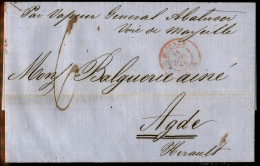 Par Vapeur General Abatucci
Voie de Marseille
Mons Balguerie ainé
Agde
Herault